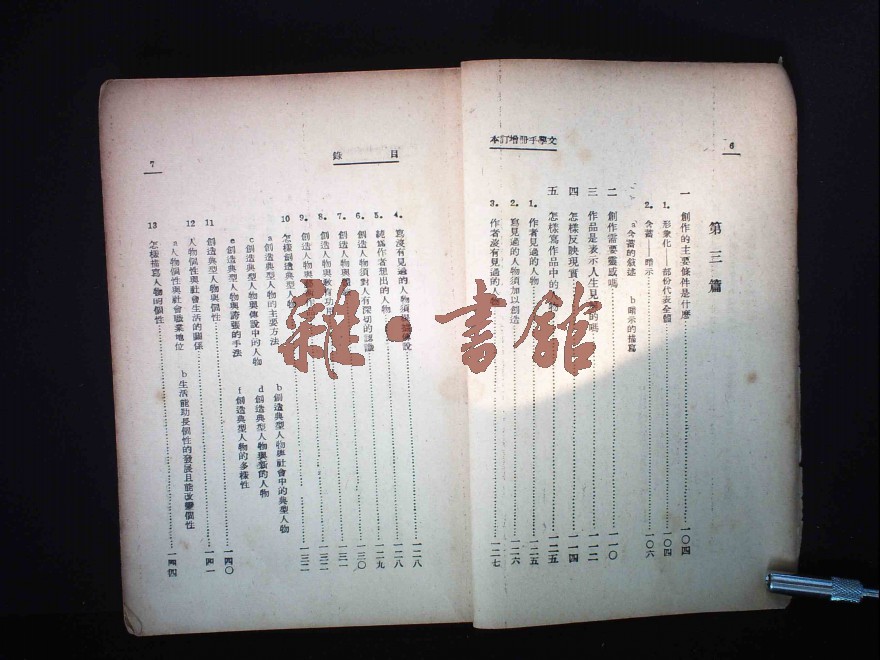 6
文學手冊增訂本
第三篇
一 創作的主要條件是什麼 一〇四
1. 形象化——部份代表全體 一〇四
2. 含蓄——暗示 一〇六
a 含蓄的敍述 b 暗示的描寫
二 創作需要靈感嗎 一一〇
三 作品是表示人生見 的嗎 一一二
四 怎樣反映現實 一一四
五 怎樣寫作品中的人物 一二五
1. 作者見過的人物 一二五
2. 寫見過的人物須加以創造 一二六
3. 作者沒有見過的人物 一二七
目錄
7
4. 寫沒有見過的人物須 一二八
5. 純爲作者想出的人物 一二九
6. 創造人物須對人有深切的認識 一三〇
7. 創造人物與 一三一
8. 創造人物與教育功用 一三二
9. 創造典型人物與 一三二
10 怎樣創造典型人物
a 創造典型人物的主要方法 b 創造典型人物與社會中的典型人物
c 創造典型人物與傳說中的人物 d 創造典型人物與新的人物
e 創造典型人物與誇張的手法 f 創造典型人物的多樣性
11 創造典型人物與個性 一四〇
12 人物個性與社會生活的關係 一四一
a 人物個性與社會職業地位 b 生活能助長個性的發展且能改變個性
13 怎樣描寫人物的個性 一四四
雜·書館